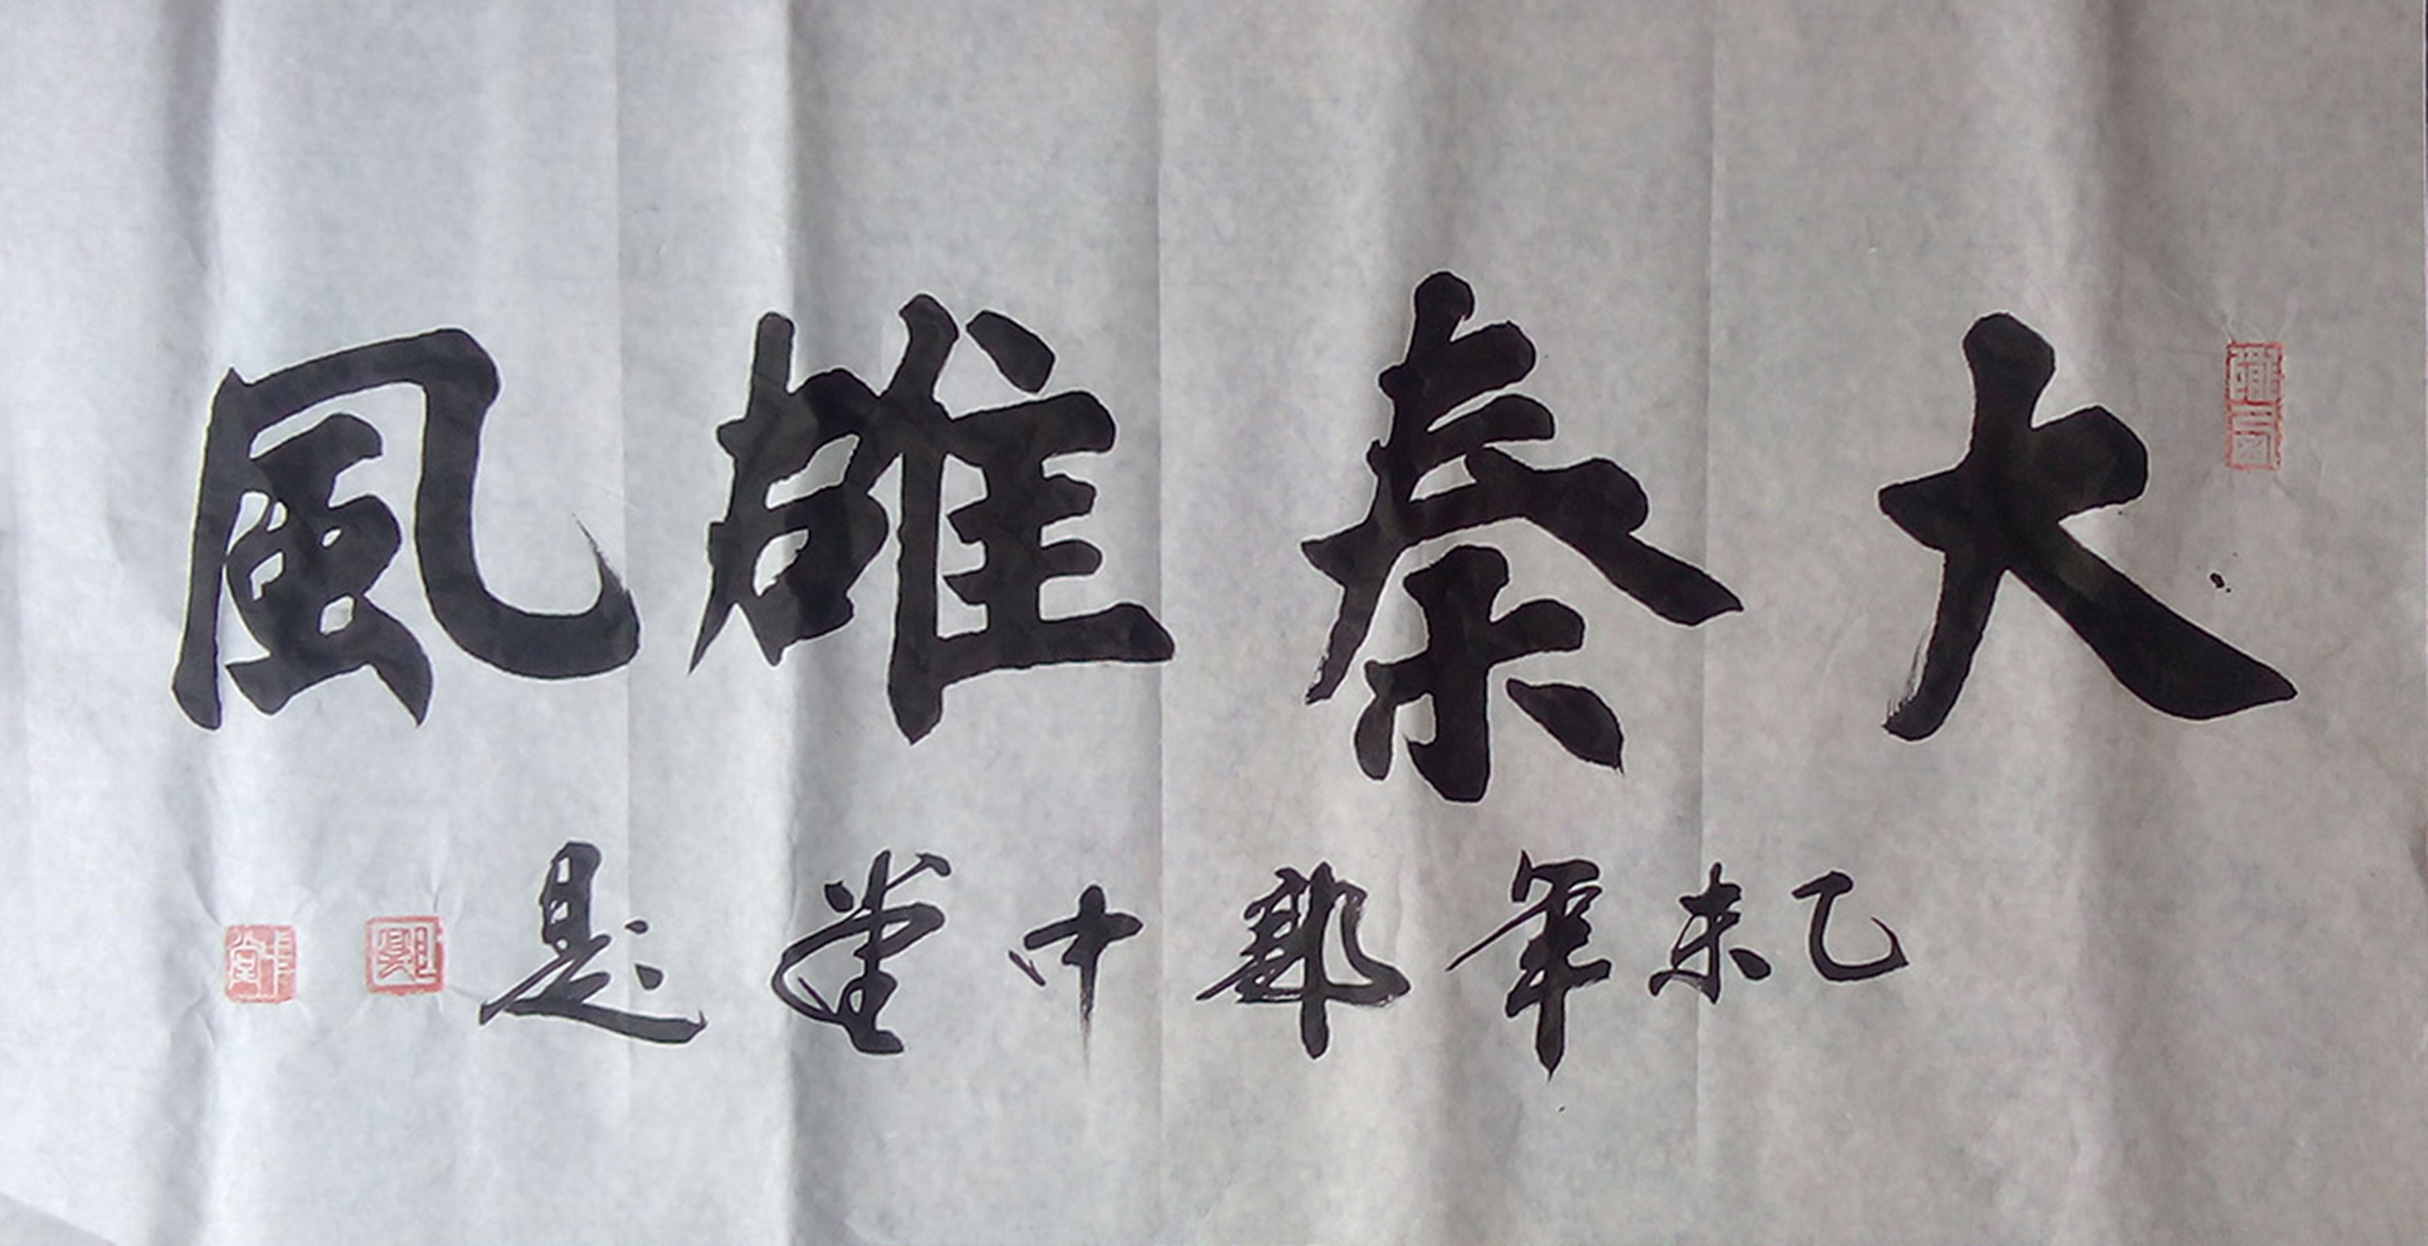 大秦雄風
乙未年鄭中堂題